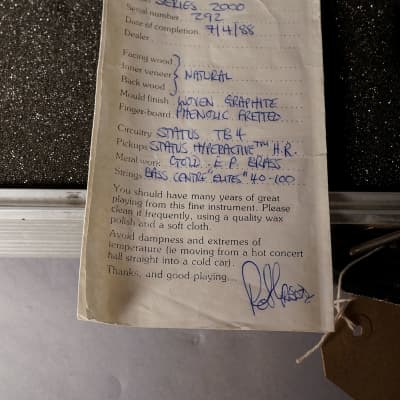 SERIES 2000
Serial number 292
Date of completion 7/4/88
Dealer
Facing wood
Inner veneer } NATURAL
Back wood
Mould finish WOVEN GRAPHITE
Finger-board PHENOLIC FRETTED
Circuitry STATUS TB4
Pickups STATUS HYPERACTIVE™ H.R.
Metal work GOLD E.P. BRASS
Strings BASS CENTRE "ELITES" 40-100
You should have many years of great
playing from this fine instrument. Please
clean it frequently, using a quality wax
polish and a soft cloth.
Avoid dampness and extremes of
temperature (ie moving from a hot concert
hall straight into a cold car).
Thanks, and good playing.